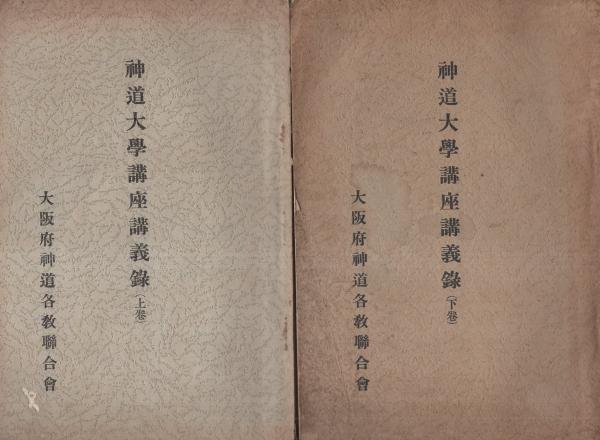 神道大學講座講義錄（上卷）
大阪府神道各敎聯合會
神道大學講座講義錄（下卷）
大阪府神道各敎聯合會